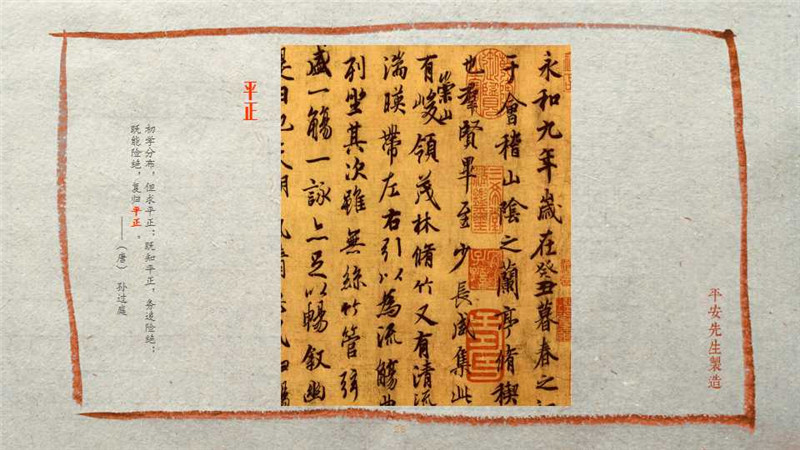 平安先生製造
永和九年歲在癸丑暮春之
于會稽山陰之蘭亭脩稧
也羣賢畢至少長咸集此
有崇山峻領茂林脩竹又有清流
湍暎帶左右引以為流觴曲
列坐其次雖無絲竹管弦
盛一觴一詠亦足以暢叙幽
平正
初学分布，但求平正；既知平正，务追险绝；
既能险绝，复归平正。
——（唐）孙过庭